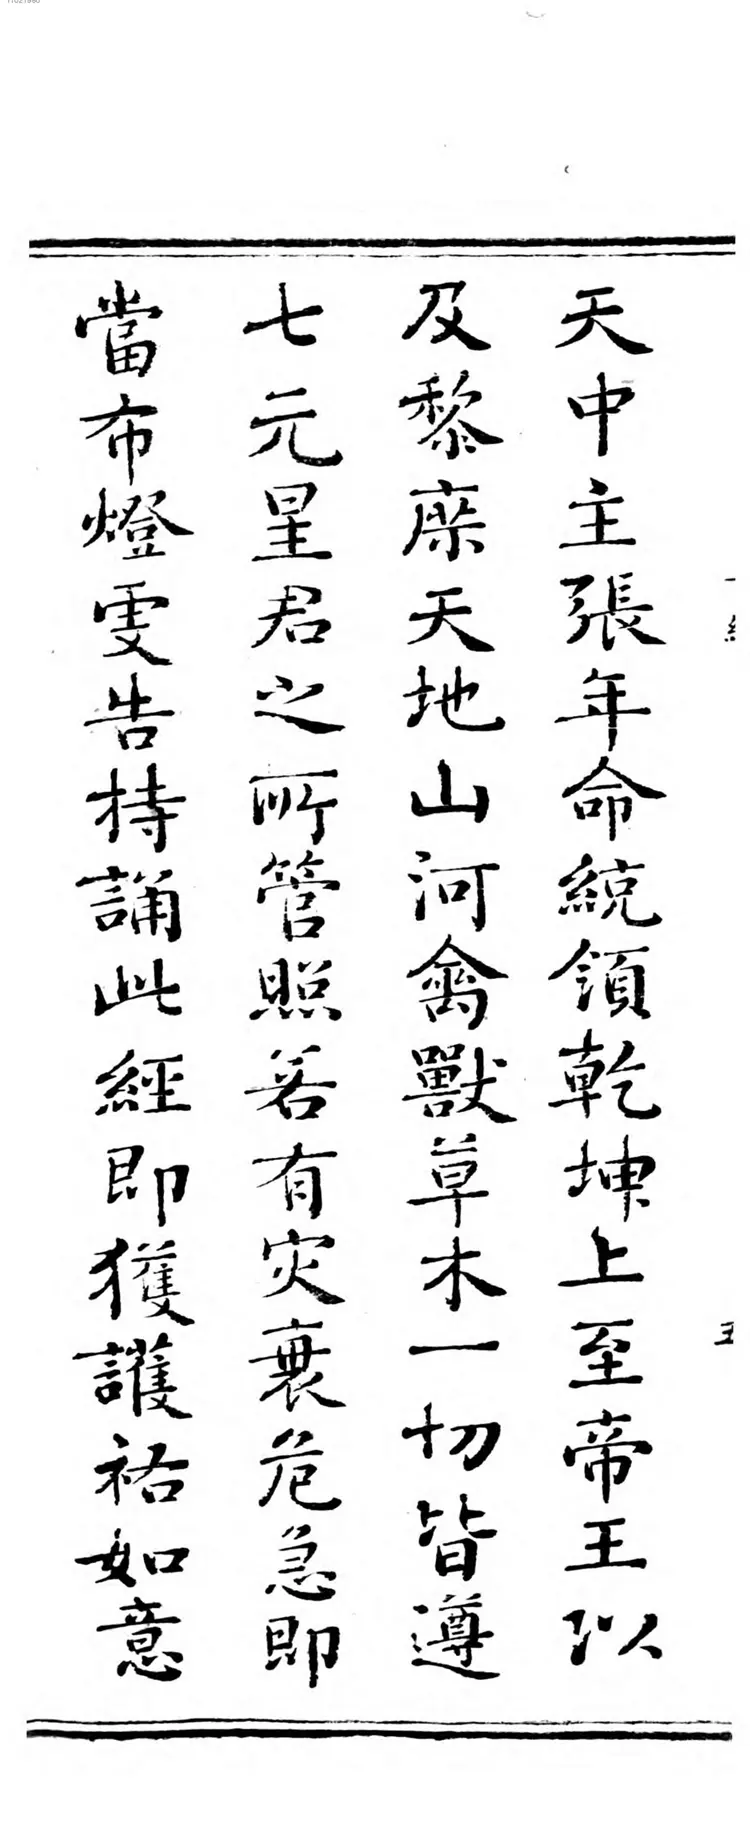 天中主張年命統領乾坤上至帝王以
及黎庶天地山河禽獸草木一切皆遵
七元星君之所管照若有灾衰危急即
當布燈虔告持誦此經即獲護祐如意